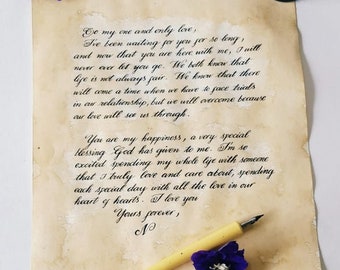 To my one and only love,
I've been waiting for you for so long,
and now that you are here with me, I will
never ever let you go. We both know that
life is not always fair. We know that there
will come a time when we have to face trials
in our relationship, but we will overcome because
our love will see us through.
You are my happiness, a very special
blessing God has given to me. I'm so
excited spending my whole life with someone
that I truly love and care about, spending
each special day with all the love in our
heart of hearts. I love you
Yours forever,
N